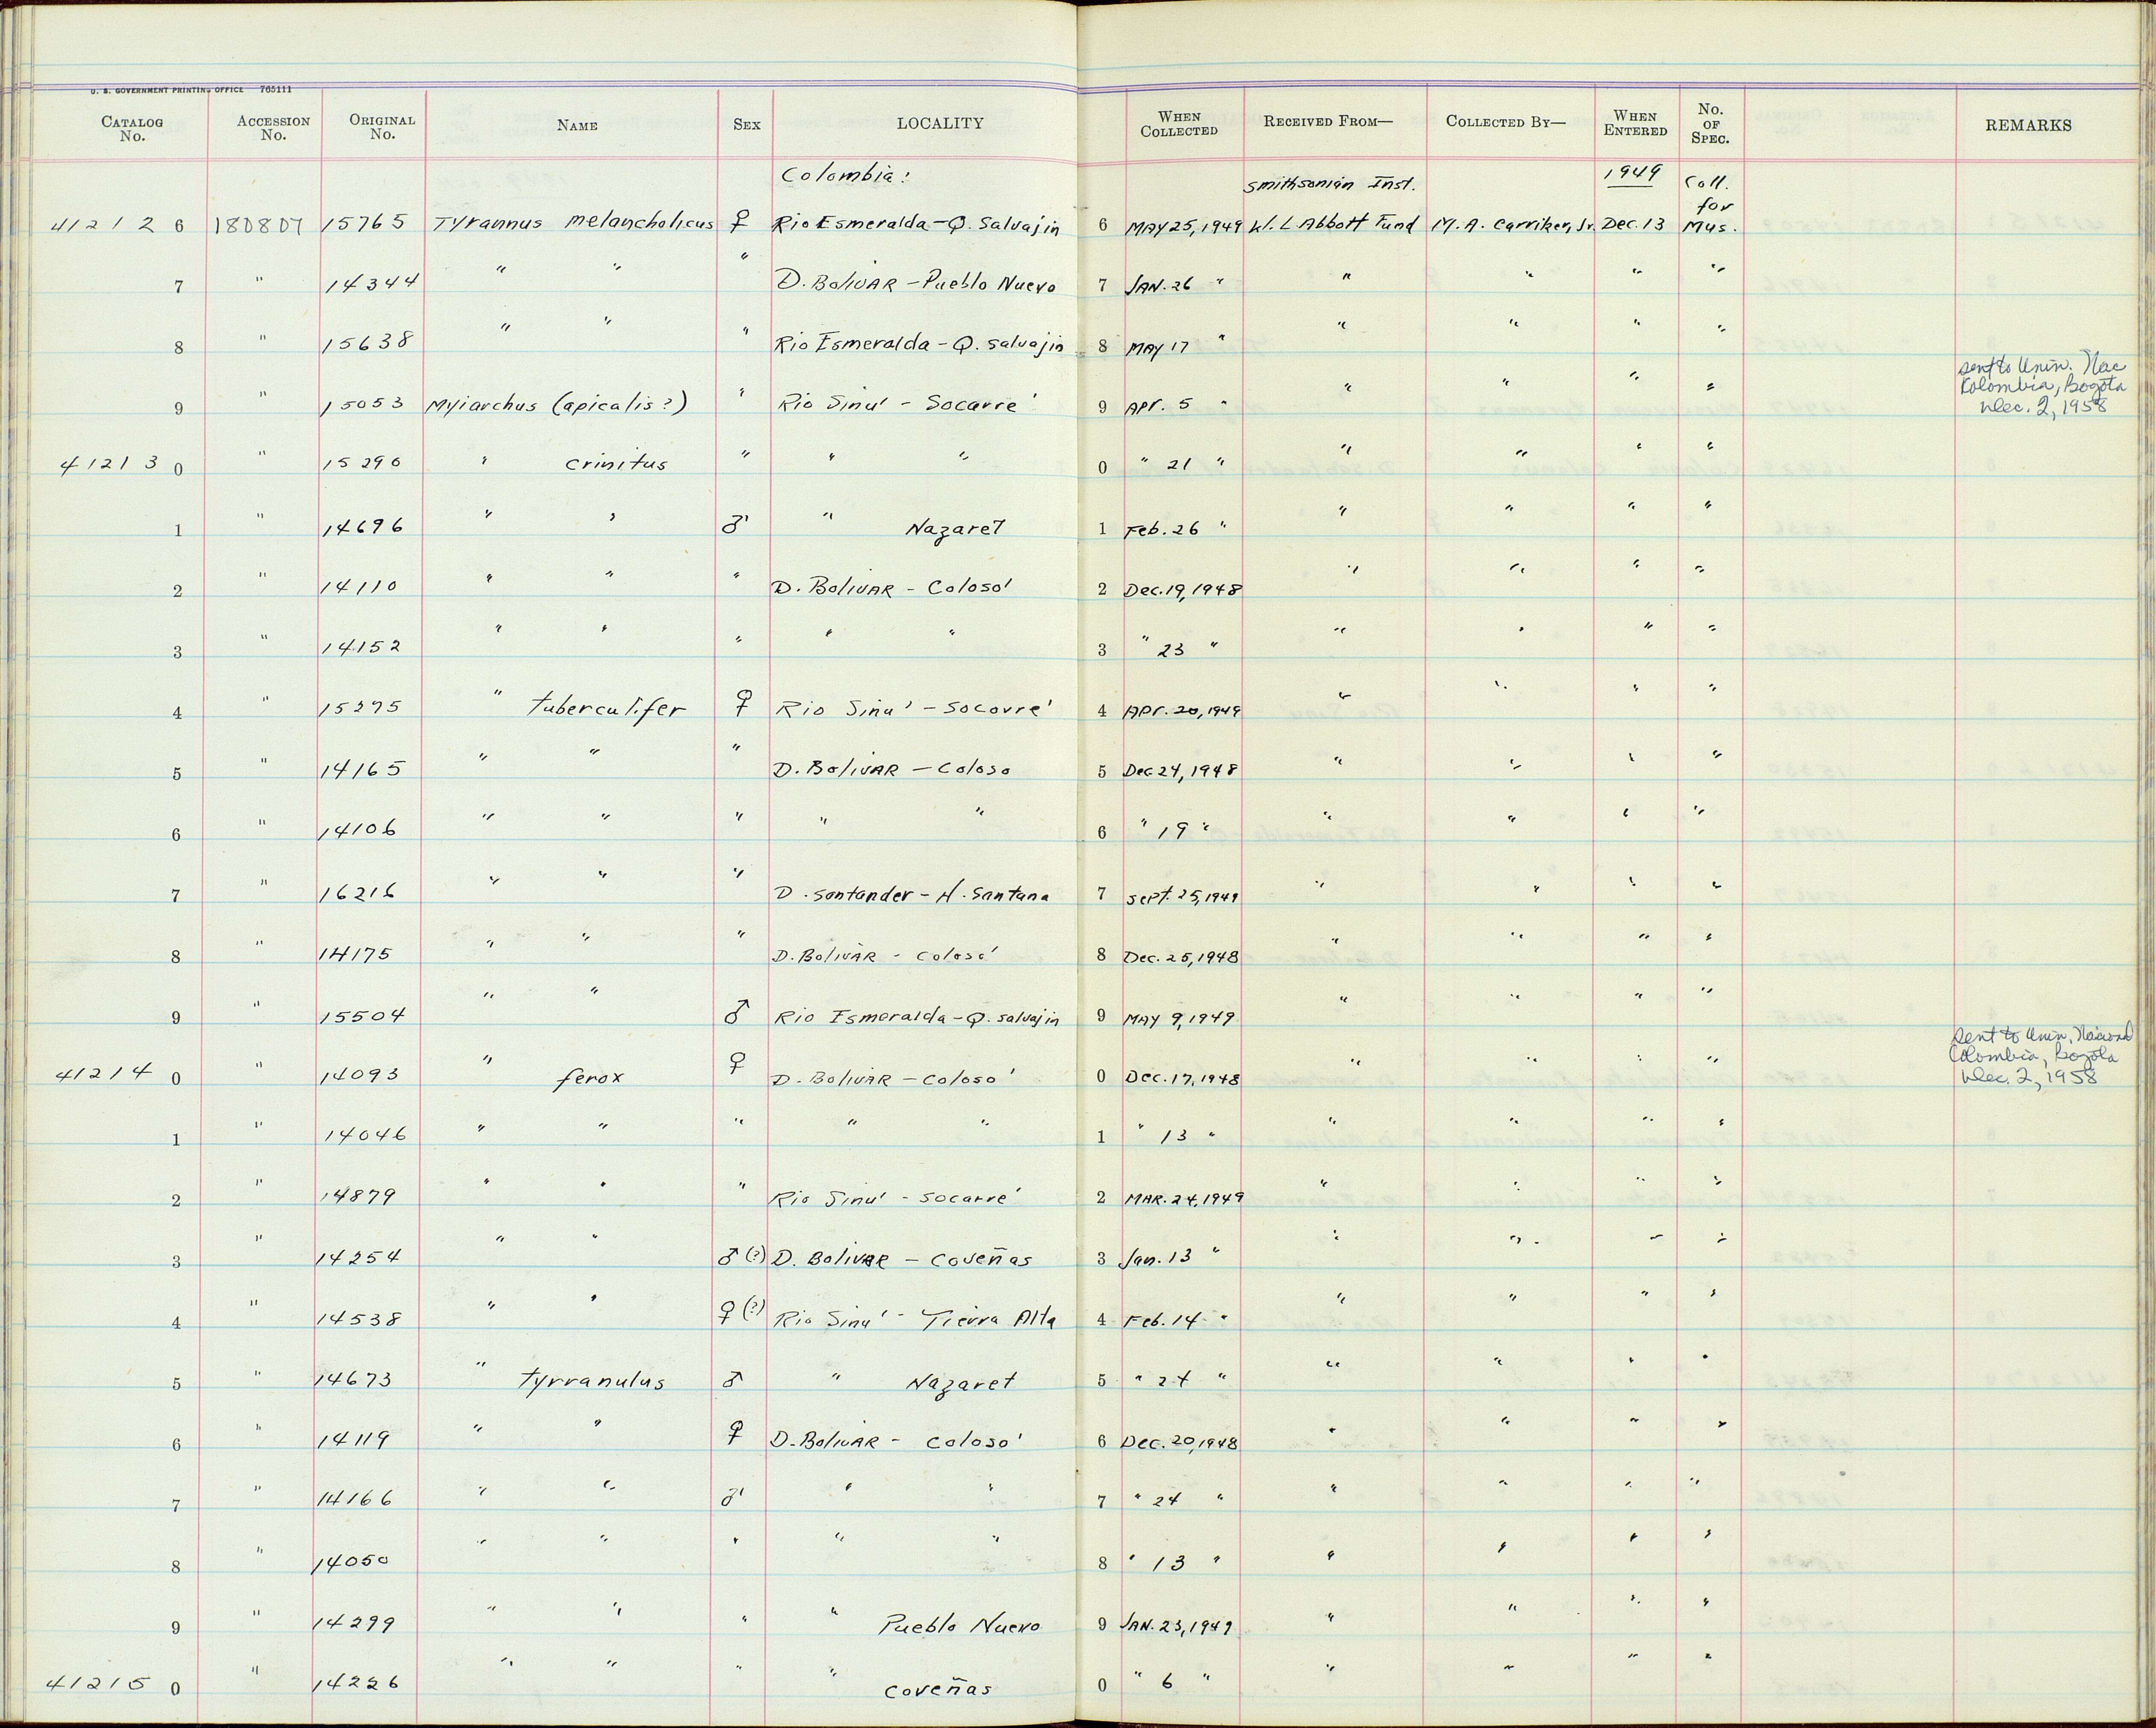 U. S. GOVERNMENT PRINTING OFFICE 765111
CATALOG No. ACCESSION No. ORIGINAL No. NAME SEX LOCALITY WHEN COLLECTED RECEIVED FROM— COLLECTED BY— WHEN ENTERED No. OF SPEC. REMARKS
Colombia: Smithsonian Inst. 1949 Coll. for
412126 180807 15765 Tyrannus melancholicus ♀ Rio Esmeralda - Q. Salvajin 6 MAY 25, 1949 W. L Abbott Fund M. A. Carriker, Jr. Dec. 13 Mus.
7 " 14344 " " " D. BolivAR - Pueblo Nuevo 7 JAN. 26 " " " " "
8 " 15638 " " " Rio Esmeralda - Q. salvajin 8 MAY 17 " " " " "
sent to Univ. Nac
Colombia, Bogota
9 " 15053 Myiarchus (apicalis?) " Rio Sinu' - Socarre' 9 Apr. 5 " " " " " Dec. 2, 1958
412130 " 15296 " crinitus " " " 0 " 21 " " " " "
1 " 14696 " " ♂ " Nazaret 1 Feb. 26 " " " " "
2 " 14110 " " " D. BolivAR - Coloso' 2 Dec. 19, 1948 " " " "
3 " 14152 " " " " " 3 " 23 " " " " "
4 " 15295 " tuberculifer ♀ Rio Sinu' - Socorre' 4 Apr. 20, 1949 " " " "
5 " 14165 " " " D. BolivAR - Coloso 5 Dec 24, 1948 " " " "
6 " 14106 " " " " " 6 " 19 " " " " "
7 " 16216 " " " D. Santander - H. Santana 7 Sept. 25, 1949 " " " "
8 " 14175 " " " D. BolivAR - Coloso' 8 Dec. 25, 1948 " " " "
9 " 15504 " " ♂ Rio Esmeralda - Q. salvajin 9 MAY 9, 1949 " " " "
sent to Univ. Nacional
Colombia, Bogota
412140 " 14093 " ferox ♀ D. BolivAR - Coloso' 0 Dec. 17, 1948 " " " " Dec. 2, 1958
1 " 14046 " " " " " 1 " 13 " " " " "
2 " 14879 " " " Rio Sinu' - Socarre' 2 MAR. 24, 1949 " " " "
3 " 14254 " " ♂ (?) D. BolivAR - Coveñas 3 Jan. 13 " " " " "
4 " 14538 " " ♀ (?) Rio Sinu' - Tierra Alta 4 Feb. 14 " " " " "
5 " 14673 " tyrranulus ♂ " Nazaret 5 " 24 " " " " "
6 " 14119 " " ♀ D. BolivAR - Coloso' 6 Dec. 20, 1948 " " " "
7 " 14166 " " ♂ " " 7 " 24 " " " " "
8 " 14050 " " " " " 8 " 13 " " " " "
9 " 14299 " " " " Pueblo Nuevo 9 JAN. 23, 1949 " " " "
412150 " 14226 " " " " Coveñas 0 " 6 " " " " "